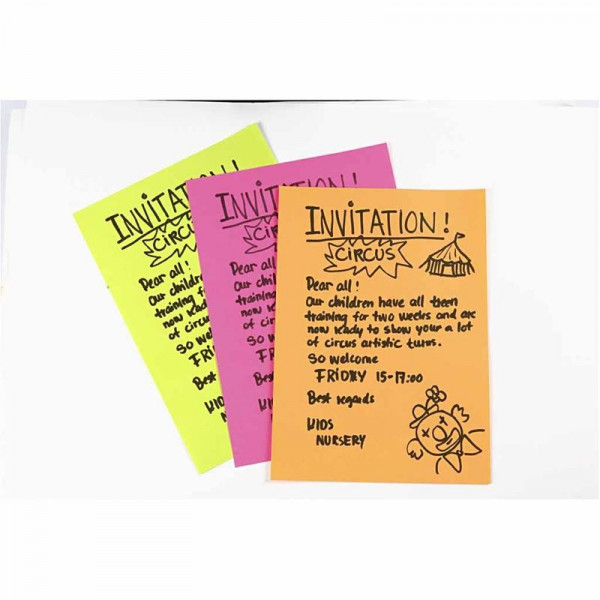 INVITATION!
CIRCUS
Dear all!
Our children
training for
now ready
of circus
So we
FRID
Best
KIDS
N
INVITATION!
CIR
Dear all!
Our children
training for
now ready
of circus
So we
FRI
Best
KIDS
NU
INVITATION!
CIRCUS
Dear all!
Our children have all been
training for two weeks and are
now ready to show your a lot
of circus artistic turns.
So welcome
FRIDAY 15-17:00
Best regards
KIDS
NURSERY